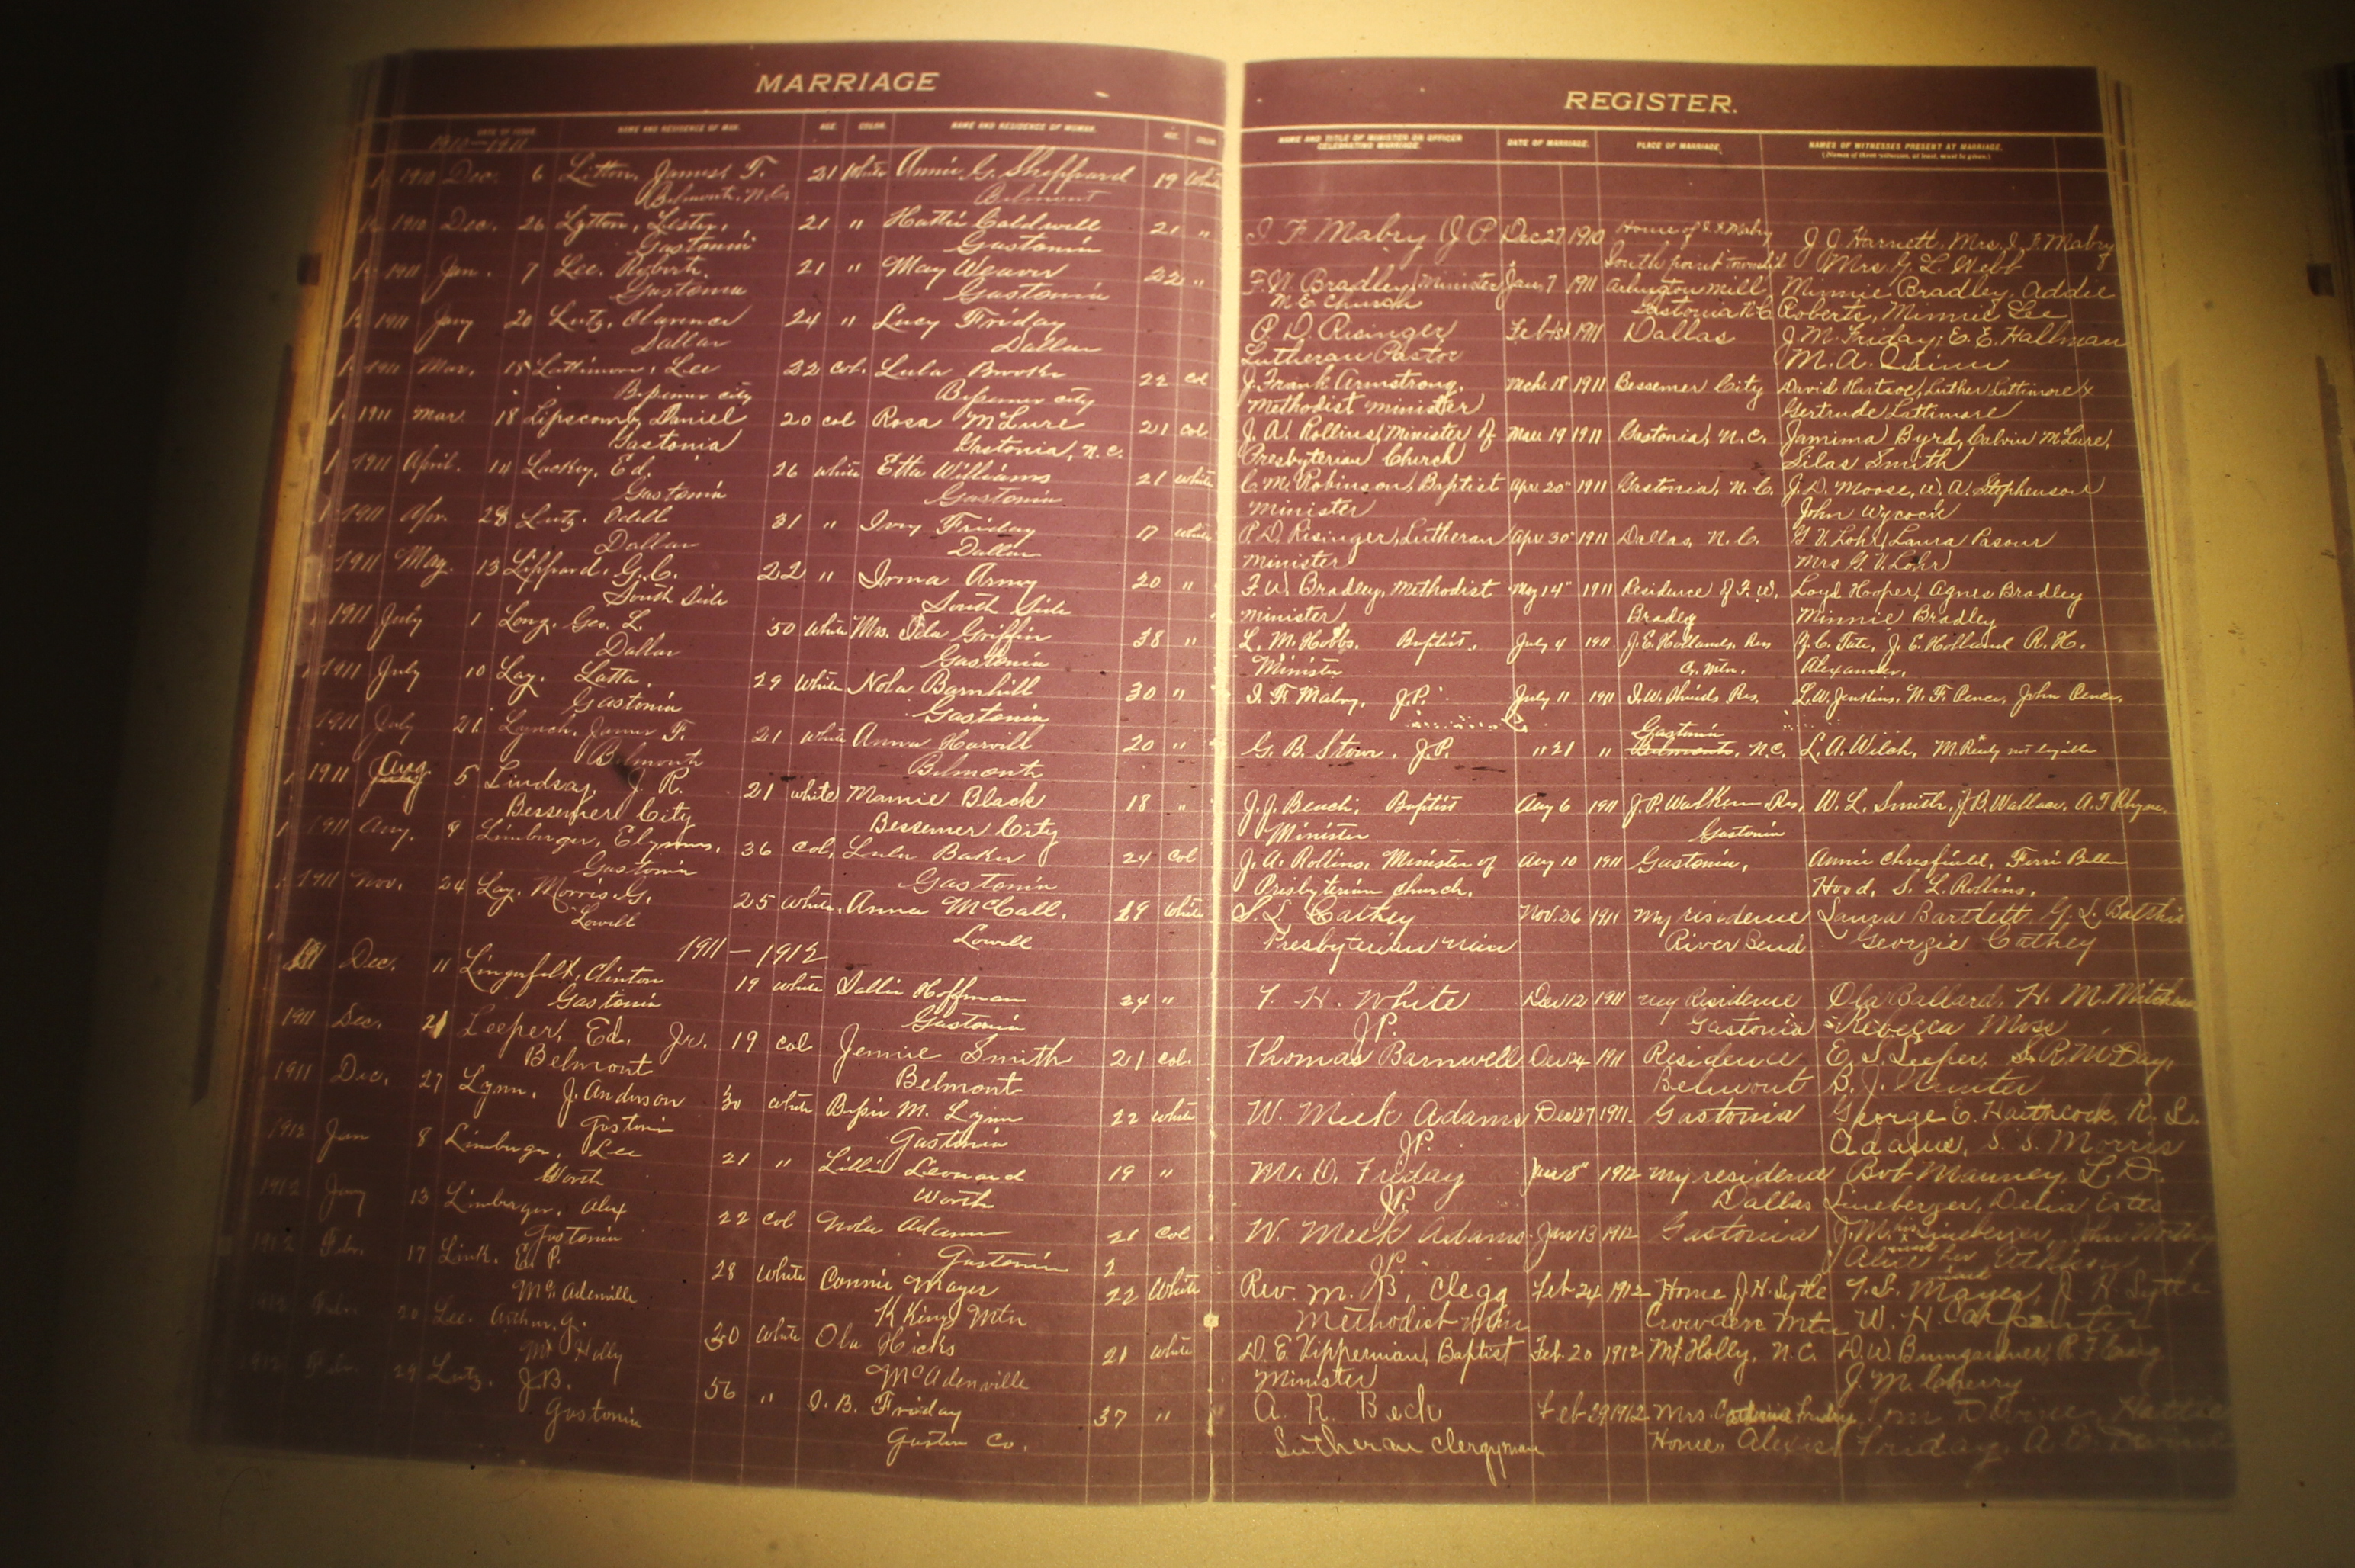 MARRIAGE
DATE OF ISSUE. NAME AND RESIDENCE OF MAN. AGE. COLOR. NAME AND RESIDENCE OF WOMAN. AGE. COLOR
1910-1911
1910 Dec. 6 Litton, James F. 21 White Annie G. Sheppard 19 White
Belmont, N.C. Belmont
1910 Dec. 26 Lytton, Lester. 21 " Hattie Caldwell 21 "
Gastonia Gastonia
1911 Jan. 7 Lee. Robert. 21 " May Weaver 22 "
Gastonia Gastonia
1911 Jany 20 Lutz, Clarence 24 " Lucy Friday
Dallas Dallas
1911 Mar. 15 Lattimore, Lee 22 col. Lula Brooks 22 col
Bessemer city Bessemer city
1911 Mar 18 Lipscomb, Daniel 20 col Rosa McLure 21 col.
Gastonia Gastonia, N.C.
1911 April. 14 Lackey, Ed. 26 white Etta Williams 21 white
Gastonia Gastonia
1911 Apr. 28 Lutz. Odell 31 " Ivey Friday 17 white
Dallas Dallas
1911 May. 13 Lippard. G.C. 22 " Irma Army 20 "
South Side South Side
1911 July 1 Long. Geo. L. 50 White Mrs. Griffin 38 "
Dallas Gastonia
1911 July 10 Lay. Latta. 29 White Nola Barnhill 30 "
Gastonia Gastonia
1911 July 21 Lynch. James F. 21 white Anna Harvill 20 "
Belmont Belmont
1911 Aug 5 Lindsay, J. R. 21 white Mamie Black 18 "
Bessemer City Bessemer City
1911 Aug. 9 Linberger, 36 col, Lula Baker 24 col
Gastonia Gastonia
1911 Nov. 24 Lay. Morris G. 25 white. Anna McCall. 29 White
Lowell Lowell
1911-1912
1911 Dec. 11 Lingerfelt, Clinton 19 white Sallie Hoffman 24 "
Gastonia Gastonia
1911 Dec. 21 Leeper, Ed. Jr. 19 col Jennie Smith 21 col.
Belmont Belmont
1911 Dec. 27 Lynn. J. Anderson 30 white Bessie M. Lynn 22 White
Gastonia Gastonia
1912 Jan 8 Linberger, Lee 21 " Lillie Leonard 19 "
Worth Worth
1912 Jany 13 Linberger, Alex 22 col Nola Adams 21 col
Gastonia Gastonia
1912 Feb. 17 Link. E. P. 28 White Connie Mayes 22 White
McAdenville K Kings Mtn
1912 Feb. 20 Lee. Arthur. G. 30 White Ola Hicks 21 white
Mt Holly McAdenville
1912 Feb 29 Lutz. J.B. 56 " I. B. Friday 37 "
Gastonia Gaston Co.
REGISTER.
NAME AND TITLE OF MINISTER OR OFFICER CELEBRATING MARRIAGE. DATE OF MARRIAGE. PLACE OF MARRIAGE. NAMES OF WITNESSES PRESENT AT MARRIAGE.
(Names of three witnesses, at least, must be given.)
I F Mabry (J P Dec 27 1910 Home of I. F. Mabry J J Harnett, Mrs. I. F. Mabry
South point township Mrs G. L. Webb
F. W. Bradley, Minister Jan, 7 1911 Arlington mill Minnie Bradley, Addie
M E Church Gastonia N C Roberts, Minnie Lee
P. D. Risinger Feb 1st 1911 Dallas J. M. Friday; E. E. Hallman
Lutheran Pastor M. A. Quinn
J. Frank Armstrong, Mch 18 1911 Bessemer City David Hartsoe, Luther Lattimore &
Methodist minister Gertrude Lattimore
J. A. Rollins, Minister of Mar 19 1911 Gastonia, N.C. Jamima Byrd, Calvin McLure,
Presbyterian Church Silas Smith
C. M. Robinson, Baptist Apr. 20" 1911 Gastonia, N.C. J. D. Moose, W. A. Stephenson
minister John Wycock
P. D. Risinger, Lutheran Apr 30" 1911 Dallas, N.C. G. V. Lohr, Laura Pasour
minister Mrs G. V. Lohr
F. W. Bradley, Methodist May 14" 1911 Residence of F. W. Loyd Hooper, Agnes Bradley
minister Bradley Minnie Bradley
L. M. Hobbs. Baptist. July 4 1911 J. E. Hollands, Res Z. C. Tate, J. E. Holland R. H.
Minister Alexander.
I. F. Mabry, J.P. July 11 1911 Res. L. W. Jenkins, N. F. Pence, John Pence,
Gastonia
G. B. Stowe, J.P. " 21 " Belmont, N.C. L. A. Welch, M. not legible
J. J. Beach. Baptist Aug 6 1911 J. P. Walker Res, W. L. Smith, J. B. Wallace, A. T. Rhyne.
Minister Gastonia
J. A. Rollins, Minister of Aug 10 1911 Gastonia, Annie Chresfield, Ferri Bell
Presbyterian church. Hood, S. L. Rollins.
S. L Cathey Nov. 26 1911 My residence Laura Bartlett, G. L. Batchie
Presbyterian min River Bend Georgie Cathey
T. H. White Dec 12 1911 my Residence Ola Ballard, H. M. Mitchem
J.P. Gastonia Rebecca Moss
Thomas Barnwell Dec 24 1911 Residence E. S. Leeper, S. R. McDay,
Belmont B. J.
W. Meek Adams Dec 27 1911. Gastonia George E. Haithcock, R. L.
J.P. Adams, S. S. Morris
M. O. Friday Jan 8" 1912 my residence Bob Mauney, L. D.
J.P. Dallas Lineberger, Delia Estes
W. Meek Adams Jan 13 1912 Gastonia J. M. his x Lineberger, John Worthy
J.P. mark Alice her Atkinson
Rev. M. B, Clegg Feb 24 1912 Home J. H. Sytle T. S. Mayes, J. H Sytle
Methodist Min Crowders Mtn W. H. Carpenter
D. E. Vipperman, Baptist Feb. 20 1912 Mt. Holly, N.C. D. W. Bumgardner, P. F. Craig
Minister J. M. Cherry
A. R. Beck Feb 29 1912 Mrs. Catherine Friday Tom Hattie
Lutheran clergyman Home. Alexis Friday,